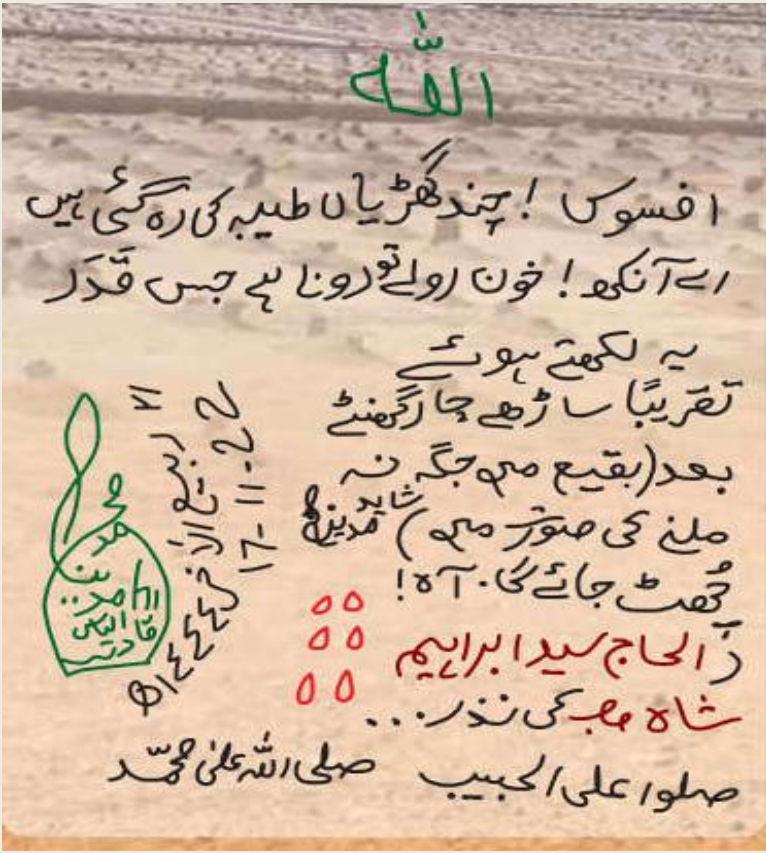 اللّٰہ
افسوس! چند گھڑیاں طیبہ کی رَہ گئی ہیں
اے آنکھ! خون رولے تو رونا ہے جس قَدَر
یہ لکھتے ہوئے
تقریبًا ساڑھے چار گھنٹے
بعد (بقیع میں جگہ نہ
ملنے کی صورت میں) شاید مدینہ
چُھٹ جائے گا. آہ!
الحاج سید ابراہیم
شاہ صاحب کی نذر...
صلوا علی الحبیب صلی اللہ علیٰ محمّد
٢١ ربیع الآخر ١٤٤٤ھ
17-11-22
محمد
الیاس
قادری